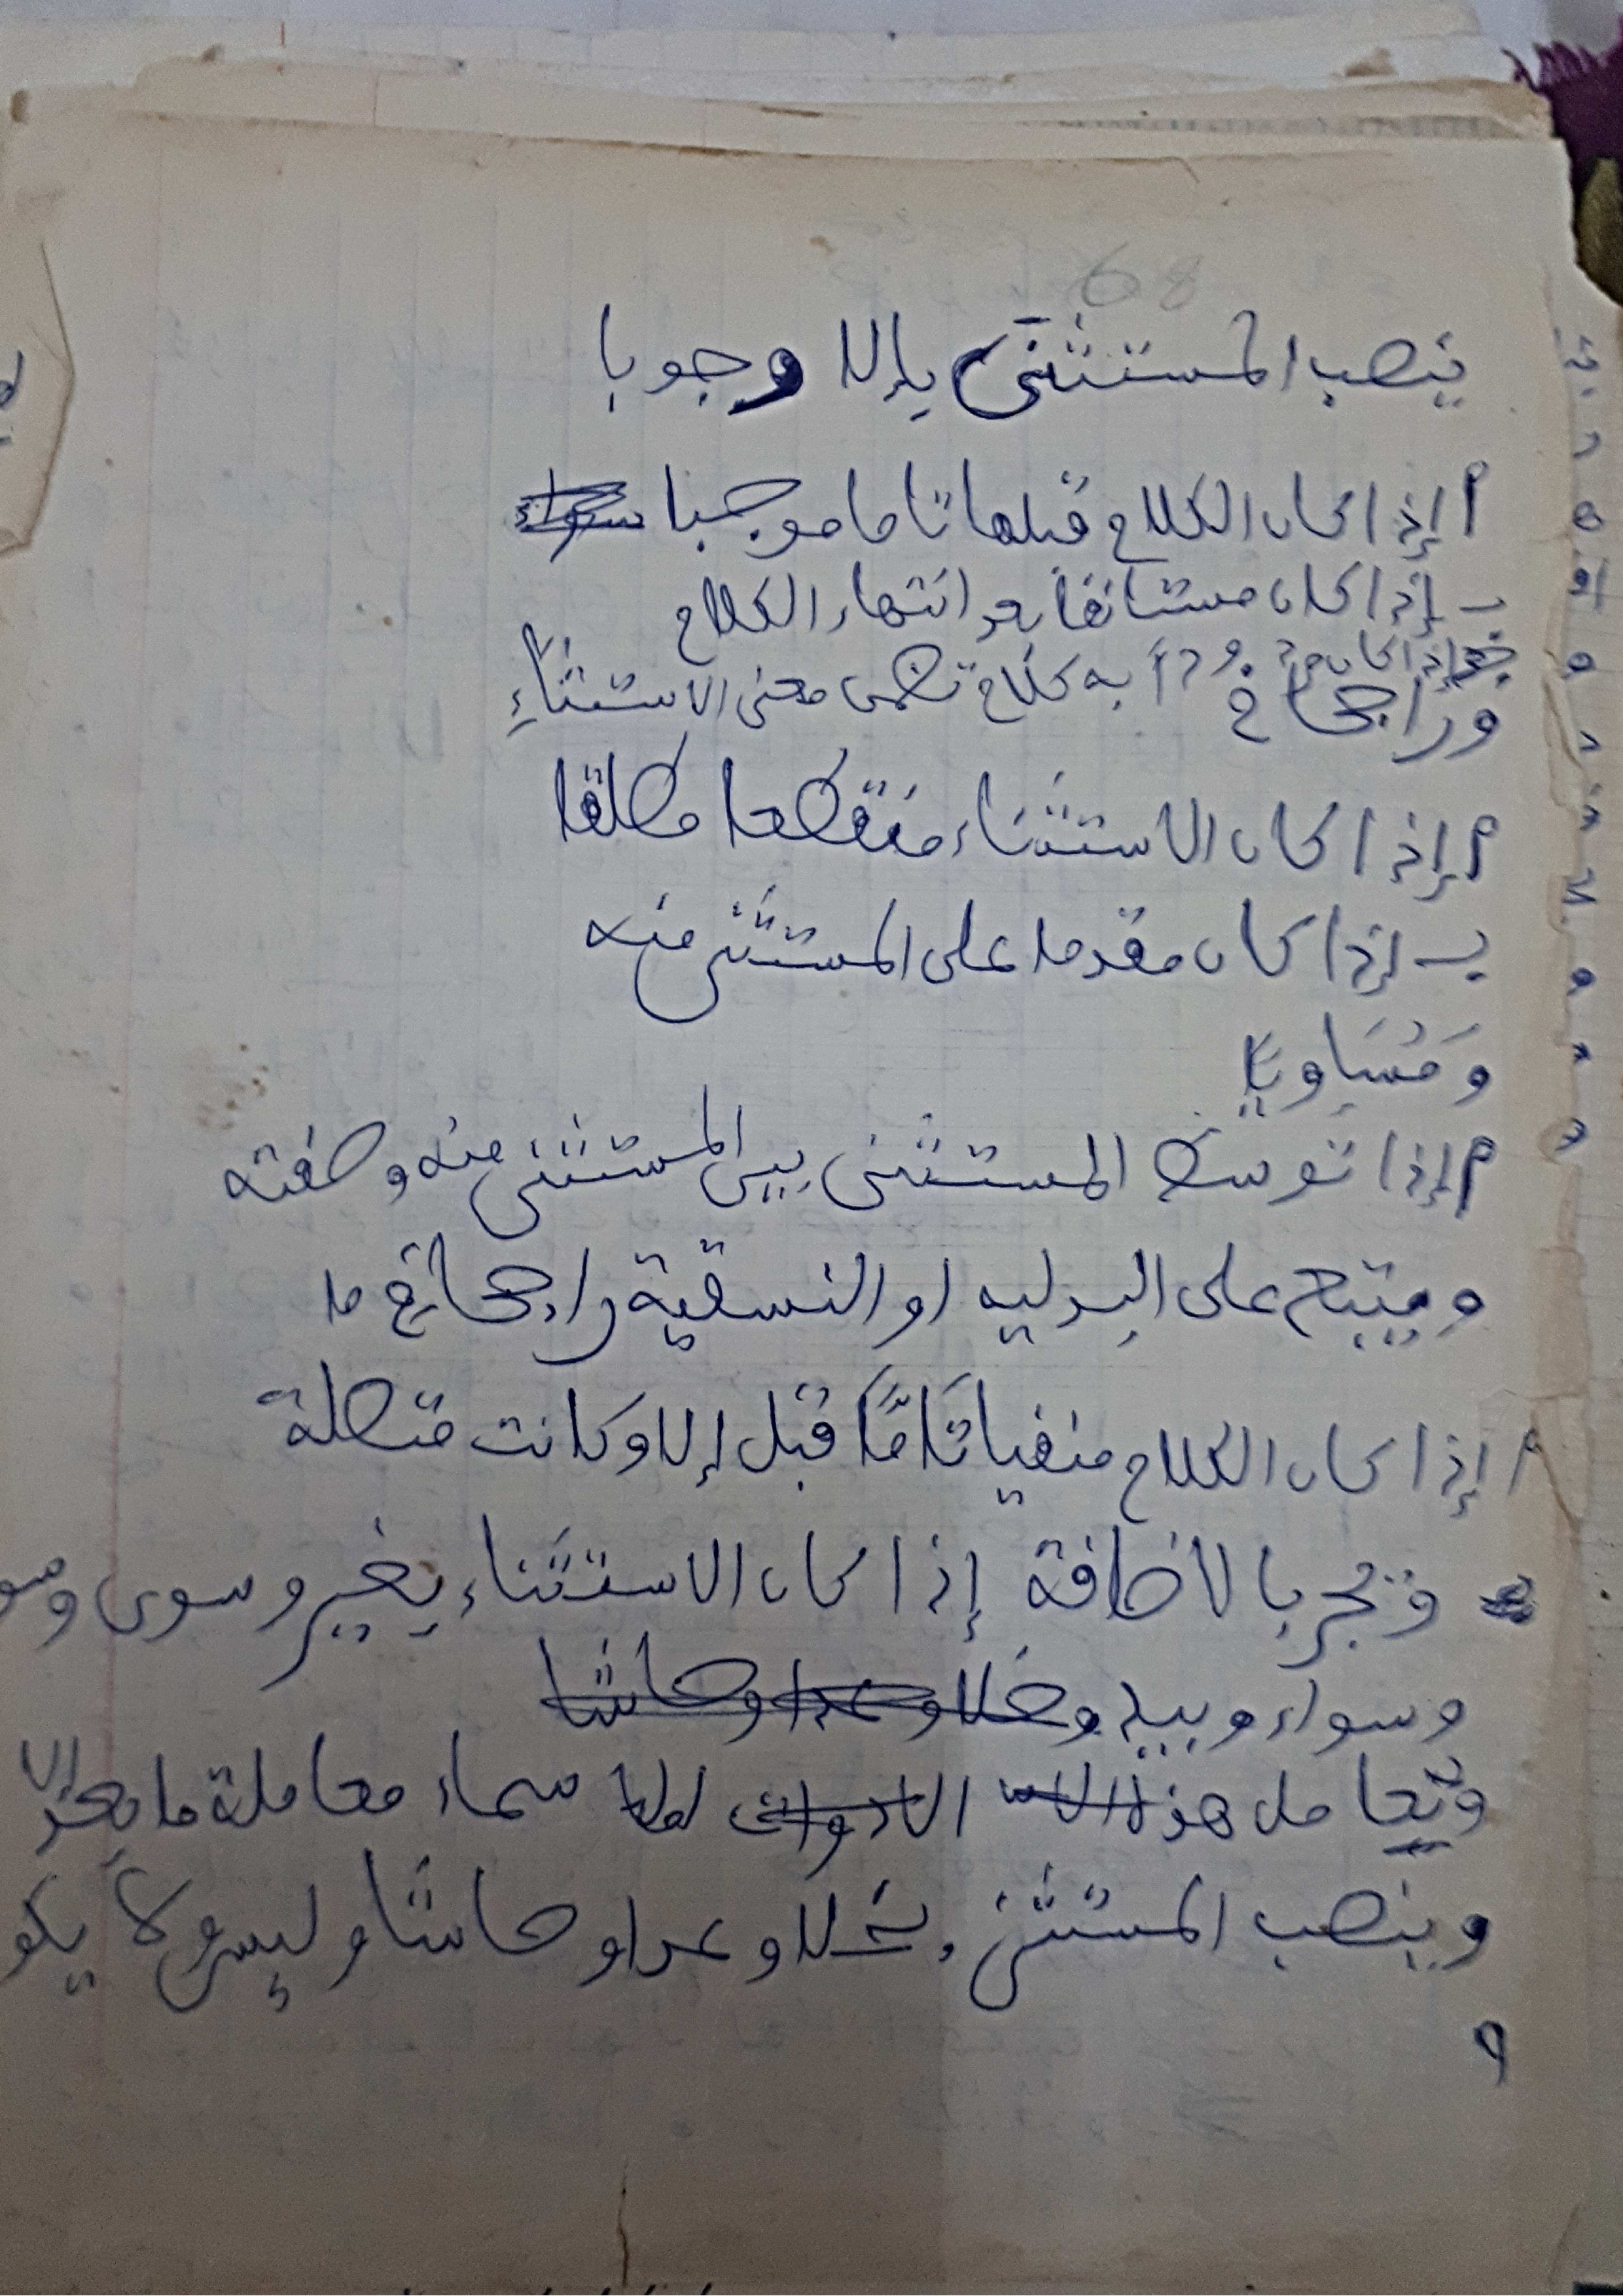 68
ينصب المستثنى بإلا وجوبا
أ إذا كان الكلام قبلها تاما موجبا سواء
ب إذا كان مستأنفا بعد انتهاء الكلام
ج إذا كان به كلام تضمن معنى الاستثناء
وراجحا في
أ إذا كان الاستثناء منقطعا مطلقا
ب إذا كان مقدما على المستثنى منه
ومُسَاويا
أ إذا توسط المستثنى بين المستثنى منه وصفته
ويتبع على البدليه او النسقية راجحا في ما
أ إذا كان الكلام منفيا تَامًّا قبل إلا وكانت متصلة
وتجر بالاضافة إذا كان الاستثناء بغير وسوى
وسواء وبيد وخلا وعدا وحاشا
وتعامل هذه الادوات سماء معاملة ما بعد إلا
وينصب المستثنى بخلا وعدا وحاشا وليس ولا